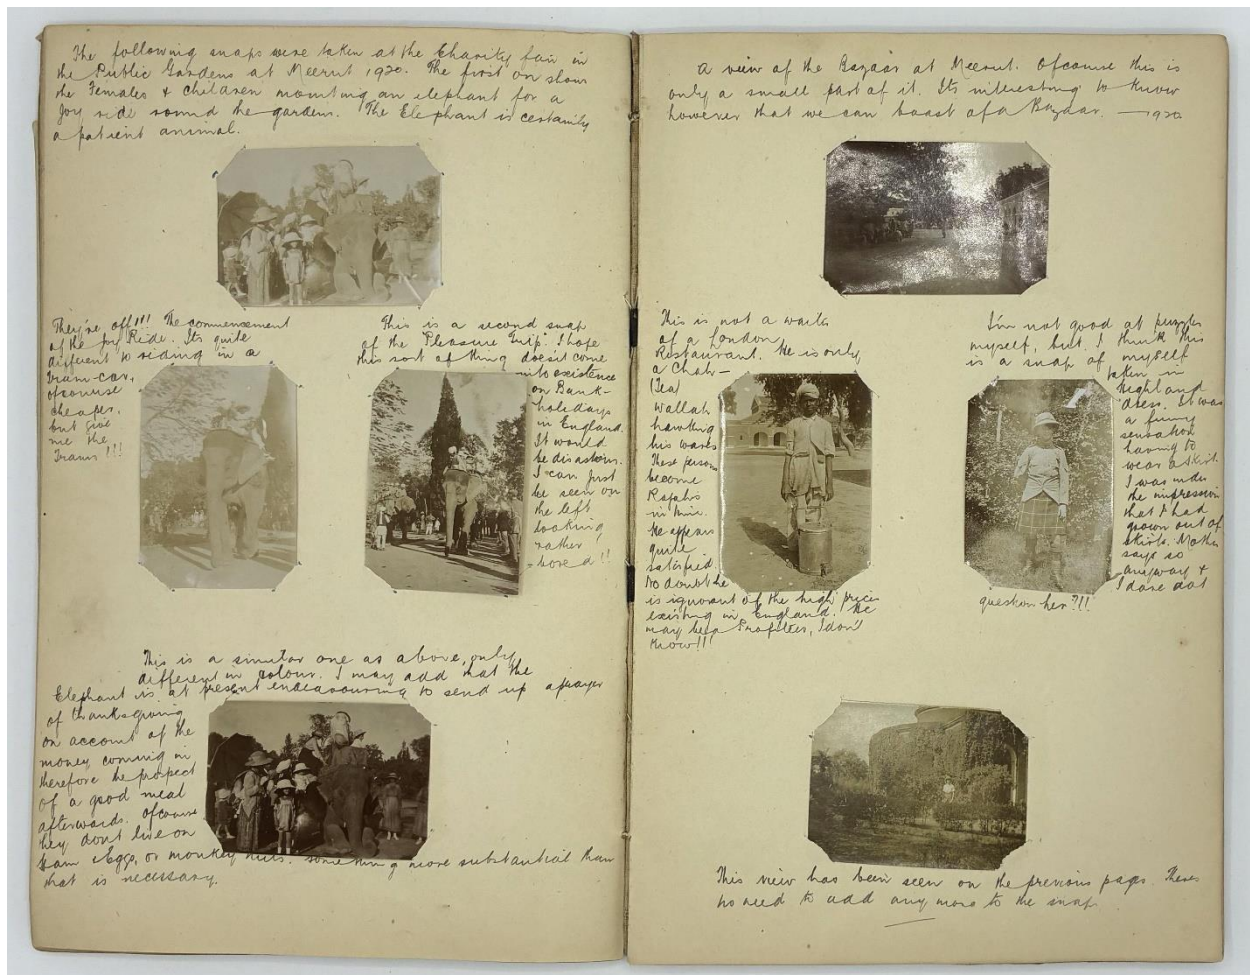 The following snaps were taken at the Charity fair in
the Public Gardens at Meerut 1920. The first on shows
the Females & children mounting an elephant for a
Joy ride round the gardens. The Elephant is certainly
a patient animal.
They're off!!! The commencement
of the Joy Ride. Its quite
different to riding in a
Tram-car,
ofcourse
cheaper,
but give
me the
Trams!!!
This is a second snap
of the Pleasure Trip. I hope
this sort of thing doesn't come
into existence
on Bank-
holidays
in England.
It would
be disastrous.
I can just
be seen on
the left
looking
rather
bored!!
This is a similar one as above, only
different in colour. I may add that the
Elephant is at present endeavouring to send up a prayer
of thanksgiving
on account of the
money coming in
therefore the prospect
of a good meal
afterwards. Ofcourse
they dont live on
Ham & Eggs, or monkey nuts. Something more substantial than
that is necessary.
A view of the Bazaar at Meerut. Ofcourse this is
only a small part of it. Its interesting to know
however that we can boast of a Bazaar. — 1920
This is not a waiter
of a London
Restaurant. He is only
a Chah-
(Tea)
Wallah
hawking
his wares
These persons
become
Rajahs
in time.
He appears
quite
satisfied
No doubt he
is ignorant of the high prices
existing in England. He
may be a Profiteer, I don't
know!!!
I'm not good at puzzles
myself, but I think this
is a snap of myself
taken in
Highland
dress. It was
a funny
sensation
having to
wear a skirt.
I was under
the impression
that I had
grown out of
skirts. Mother
says so
anyway &
I dare not
question her?!!
This view has been seen on the previous page. Theres
no need to add any more to the snap.